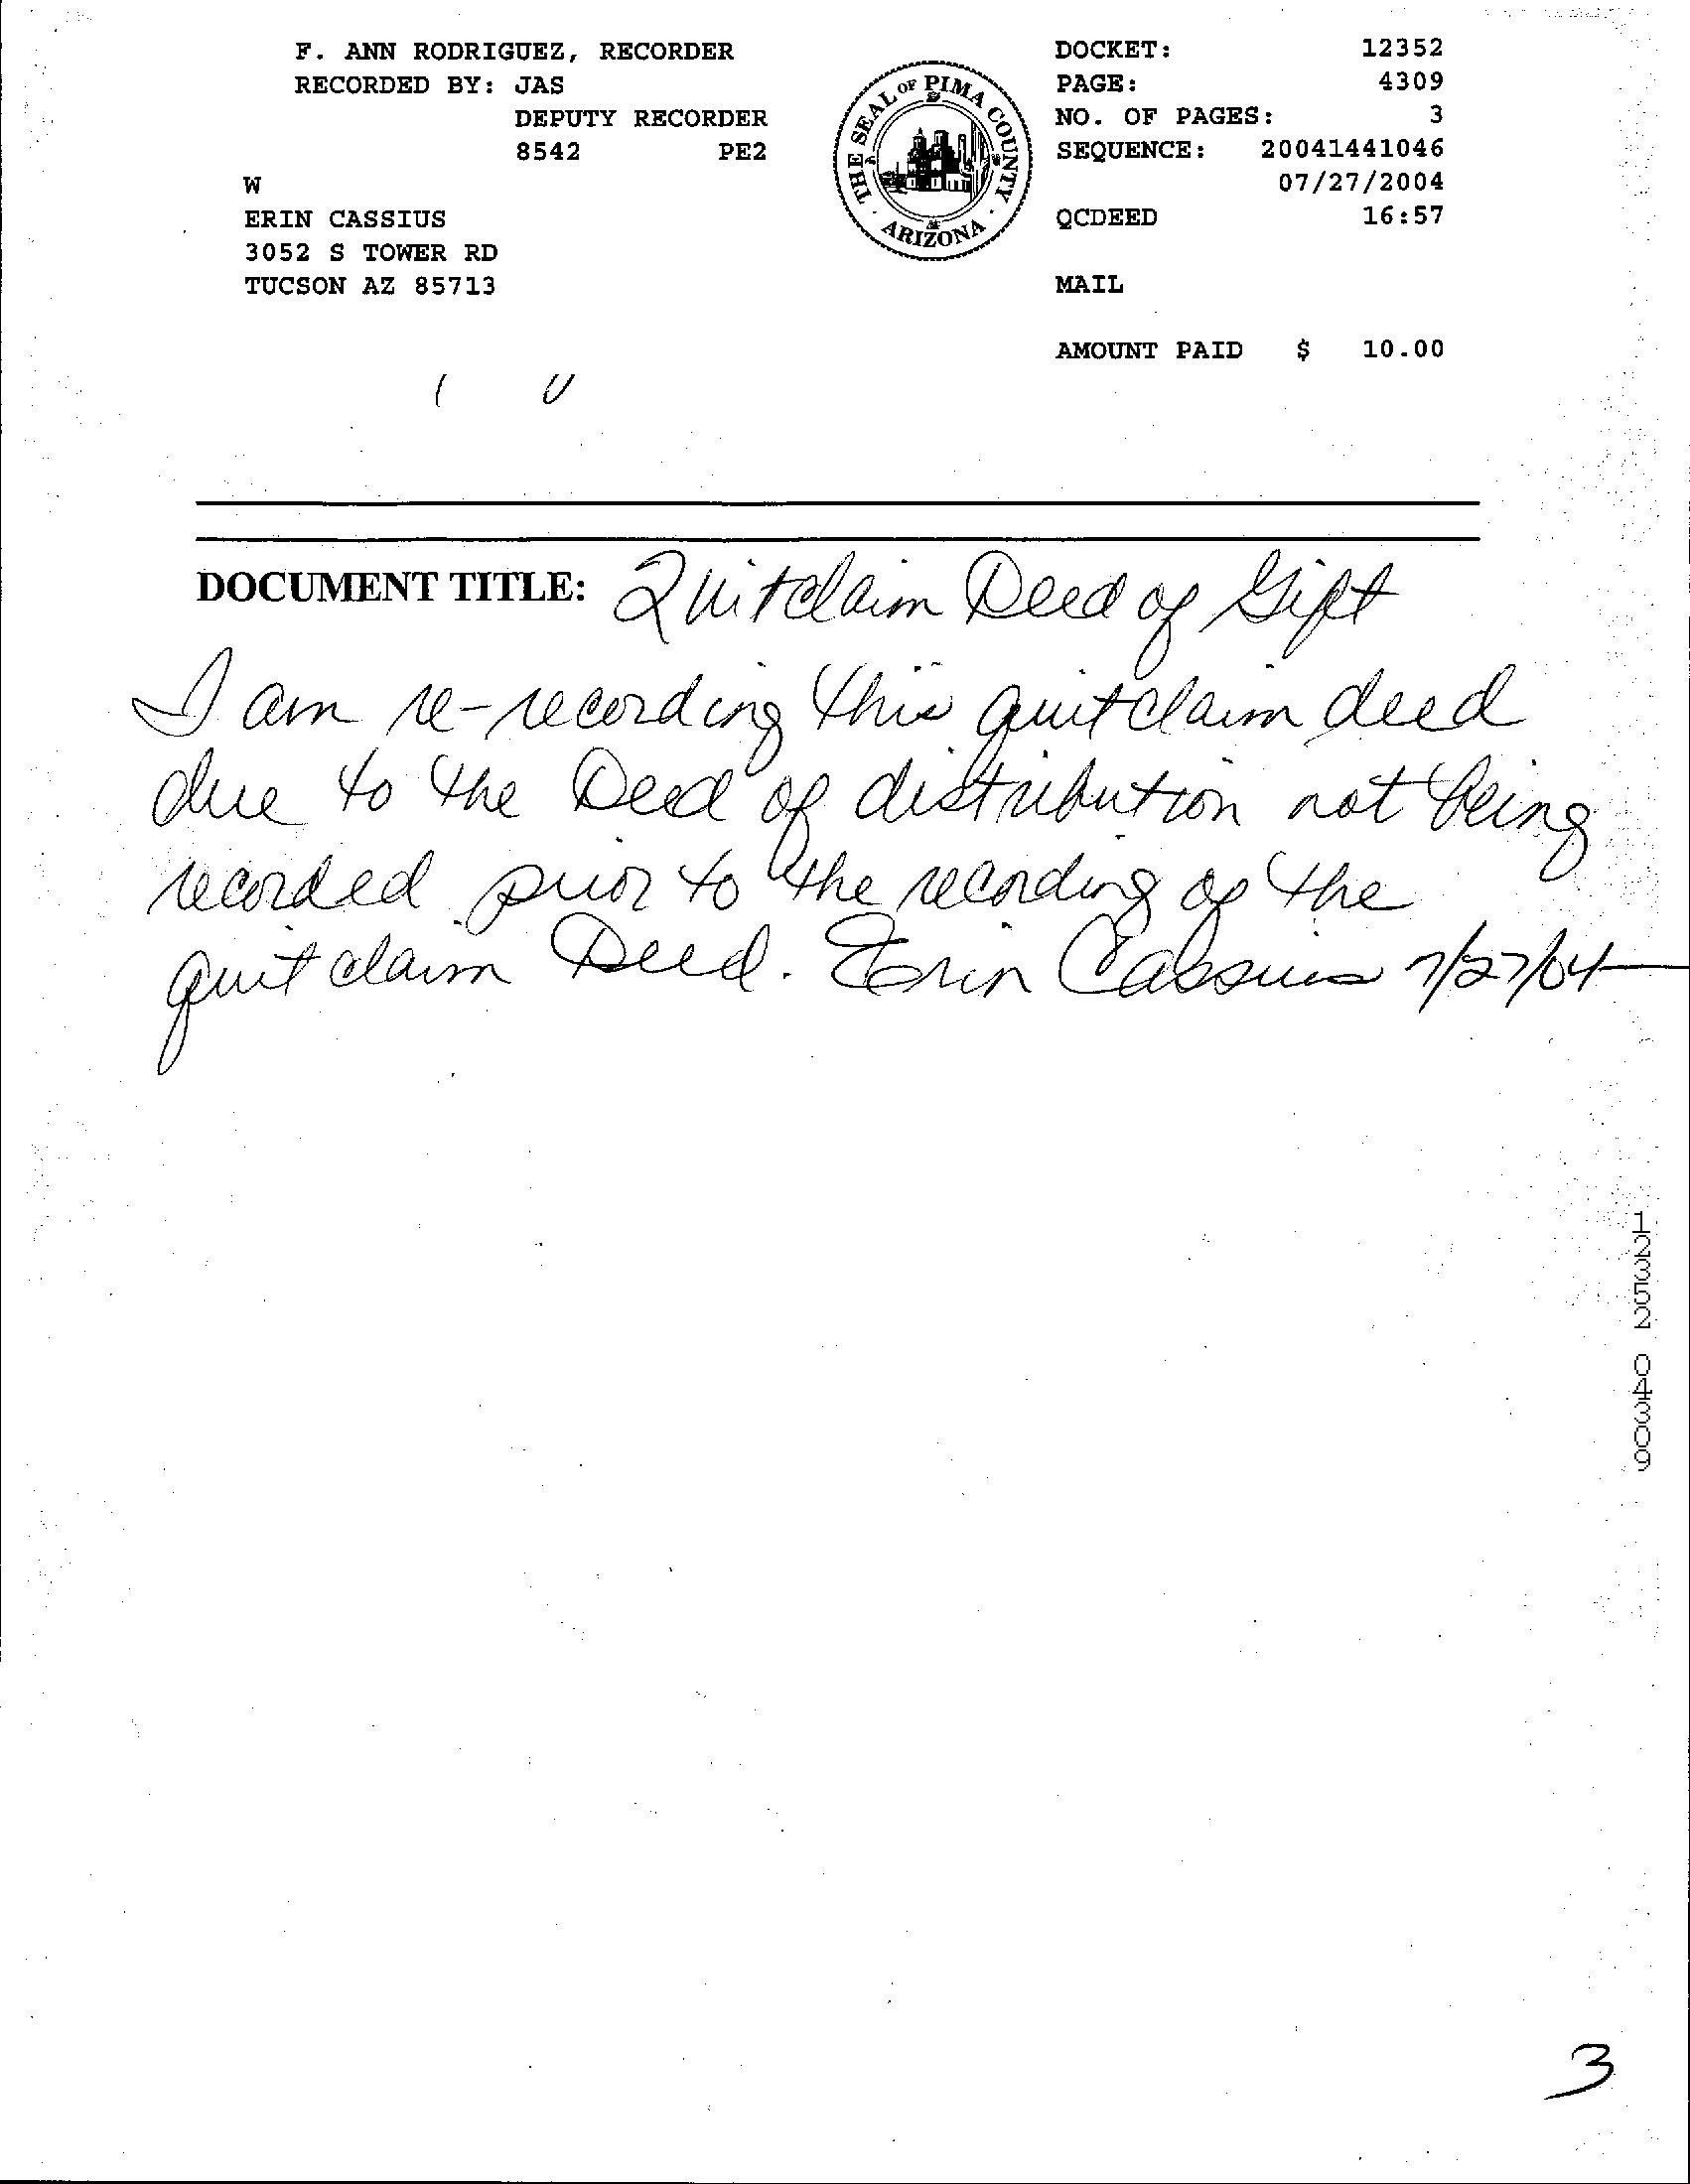 F. ANN RODRIGUEZ, RECORDER
RECORDED BY: JAS
DEPUTY RECORDER
8542 PE2
W
ERIN CASSIUS
3052 S TOWER RD
TUCSON AZ 85713
THE SEAL OF PIMA COUNTY
ARIZONA
DOCKET: 12352
PAGE: 4309
NO. OF PAGES: 3
SEQUENCE: 20041441046
07/27/2004
QCDEED 16:57
MAIL
AMOUNT PAID $ 10.00
DOCUMENT TITLE: Quitclaim Deed of Gift
I am re-recording this quitclaim deed
due to the Deed of distribution not being
recorded prior to the recording of the
quit claim Deed. Erin Cassius 7/27/04
12352 04309
3